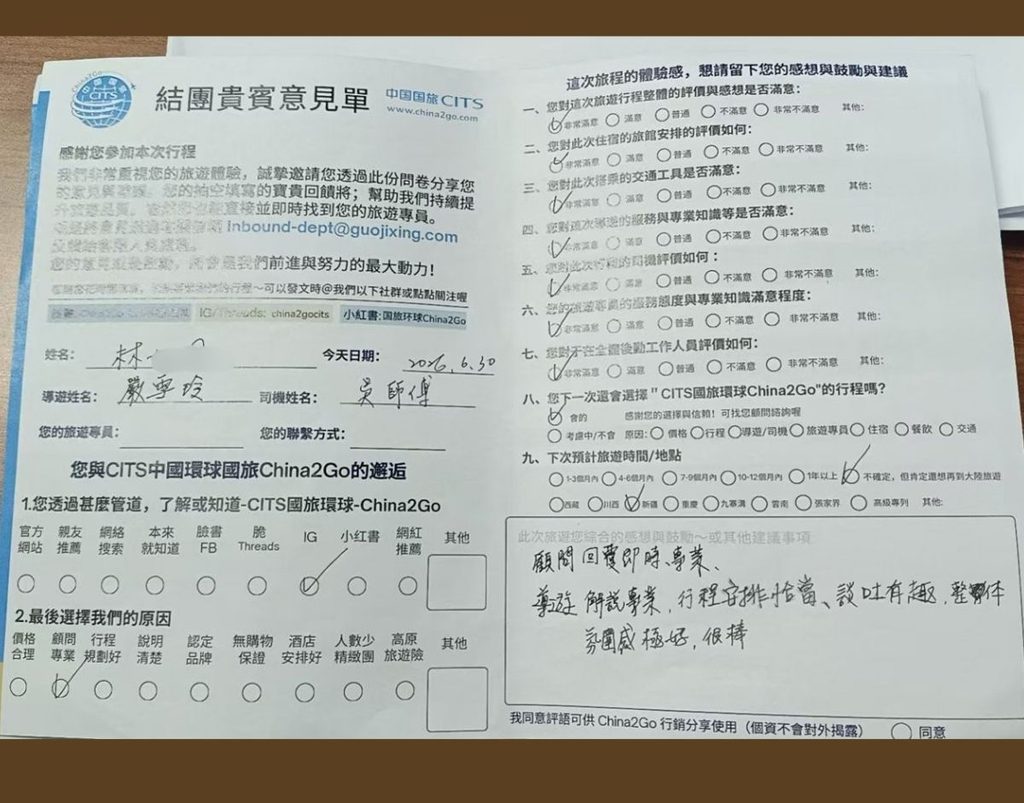 China2Go
CITS
結團貴賓意見單
中国国旅CITS
www.china2go.com
感謝您參加本次行程
我們非常重視您的旅遊體驗，誠摯邀請您透過此份問卷分享您
您的抽空填寫的寶貴回饋將；幫助我們持續提
直接並即時找到您的旅遊專員。
Inbound-dept@guojixing.com
我們前進與努力的最大動力！
可以發文時@我們以下社群或點點關注喔
IG/Threads: china2gocits
小紅書:国旅环球China2Go
姓名：林
今天日期：2026.6.30
導遊姓名：嚴雪玲
司機姓名：吳師傅
您的旅遊專員：
您的聯繫方式：
您與CITS中國環球國旅China2Go的邂逅
1.您透過甚麼管道，了解或知道-CITS國旅環球-China2Go
官方網站 親友推薦 網絡搜索 本來就知道 臉書FB 脆Threads IG 小紅書 網紅推薦 其他
2.最後選擇我們的原因
價格合理 顧問專業 行程規劃好 說明清楚 認定品牌 無購物保證 酒店安排好 人數少精緻團 高原旅遊險 其他
這次旅程的體驗感，懇請留下您的感想與鼓勵與建議
一、您對這次旅遊行程整體的評價與感想是否滿意：
非常滿意 滿意 普通 不滿意 非常不滿意 其他:
二、您對此次住宿的旅館安排的評價如何：
非常滿意 滿意 普通 不滿意 非常不滿意 其他:
三、您對此次搭乘的交通工具是否滿意：
非常滿意 滿意 普通 不滿意 非常不滿意 其他:
四、您對這次導遊的服務與專業知識等是否滿意：
非常滿意 滿意 普通 不滿意 非常不滿意 其他:
五、您對此次行程的司機評價如何：
非常滿意 滿意 普通 不滿意 非常不滿意 其他:
六、您的旅遊專員的服務態度與專業知識滿意程度：
非常滿意 滿意 普通 不滿意 非常不滿意 其他:
七、您對不在全體後勤工作人員評價如何：
非常滿意 滿意 普通 不滿意 非常不滿意 其他:
八、您下一次還會選擇"CITS國旅環球China2Go"的行程嗎？
會的 感謝您的選擇與信賴！可找您顧問諮詢喔
考慮中/不會 原因: 價格 行程 導遊/司機 旅遊專員 住宿 餐飲 交通
九、下次預計旅遊時間/地點
1-3個月內 4-6個月內 7-9個月內 10-12個月內 1年以上 不確定，但肯定還想再到大陸旅遊
西藏 川西 新疆 重慶 九寨溝 雲南 張家界 高級專列 其他:
此次旅遊您綜合的感想與鼓勵～或其他建議事項
顧問回覆即時、專業、
導遊解說專業，行程安排恰當、談吐有趣，整體
氛圍感極好，很棒
我同意評語可供 China2Go 行銷分享使用（個資不會對外揭露） 同意